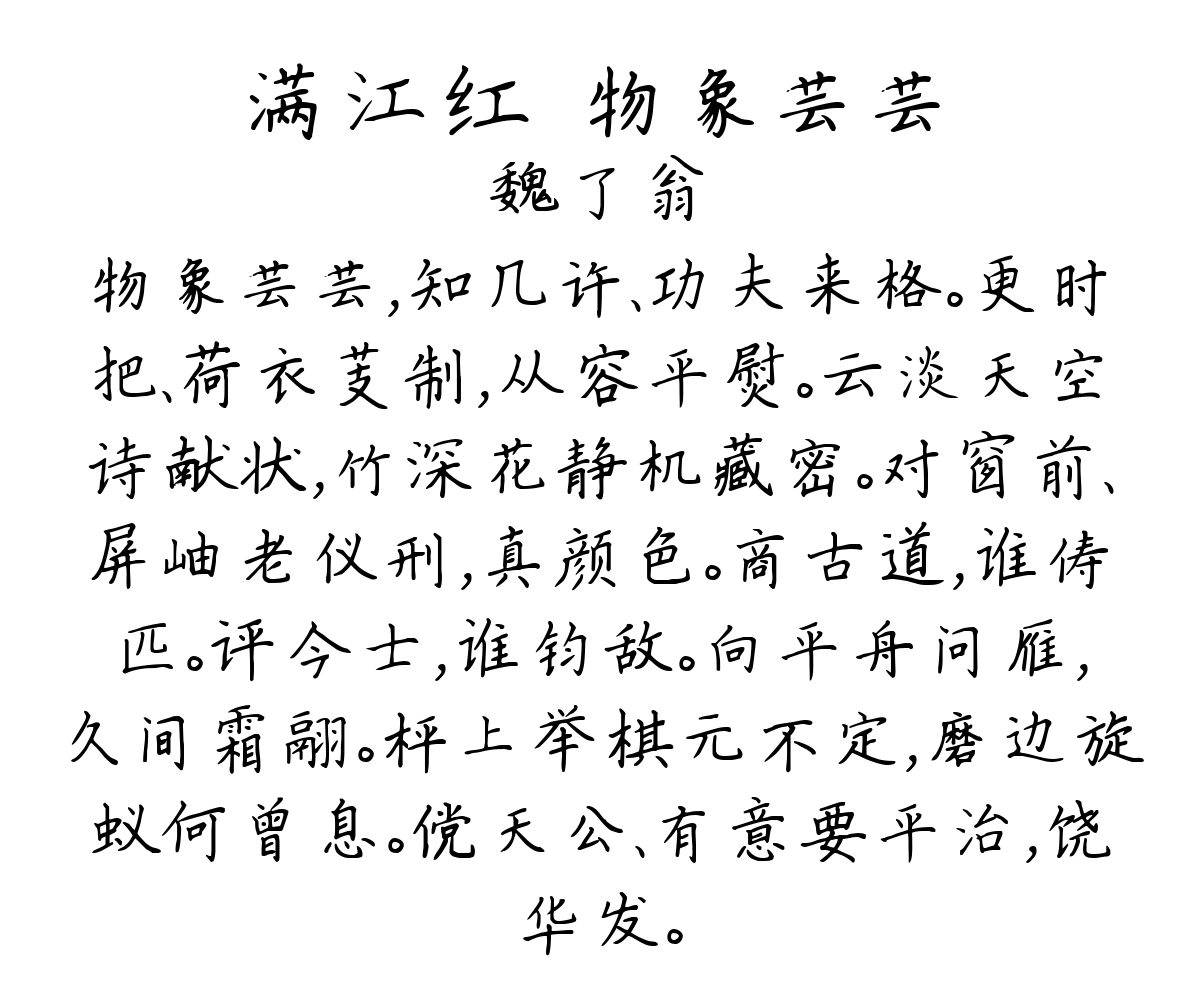 满江红 物象芸芸
魏了翁
物象芸芸,知几许、功夫来格。更时
把、荷衣芰制,从容平熨。云淡天空
诗献状,竹深花静机藏密。对窗前、
屏岫老仪刑,真颜色。商古道,谁俦
匹。评今士,谁钧敌。向平舟问雁,
久间霜翮。枰上举棋元不定,磨边旋
蚁何曾息。傥天公、有意要平治,饶
华发。